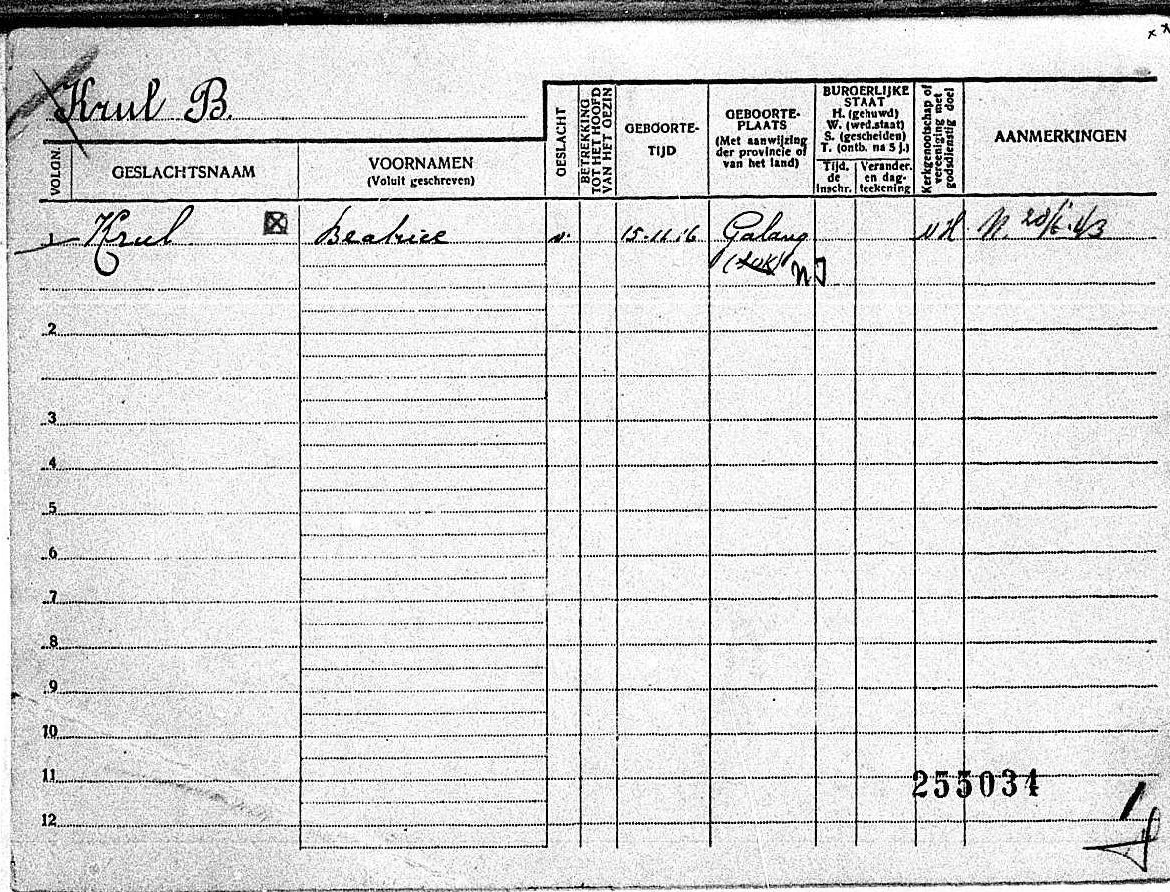 Krul B.
VOLGN.
GESLACHTSNAAM
VOORNAMEN
(Voluit geschreven)
GESLACHT
BETREKKING
TOT HET HOOFD
VAN HET GEZIN
GEBOORTE-
TIJD
GEBOORTE-
PLAATS
(Met aanwijzing
der provincie of
van het land)
BURGERLIJKE
STAAT
H. (gehuwd)
W. (wed.staat)
S. (gescheiden)
T. (ontb. na 5 j.)
Tijd.
de
inschr.
Verander.
en dag-
teekening
Kerkgenootschap of
vereeniging met
godsdienstig doel
AANMERKINGEN
1 Krul Beatrice v. 15-11.16 Galang NH
NI
2
3
4
5
6
7
8
9
10
11
255034
12